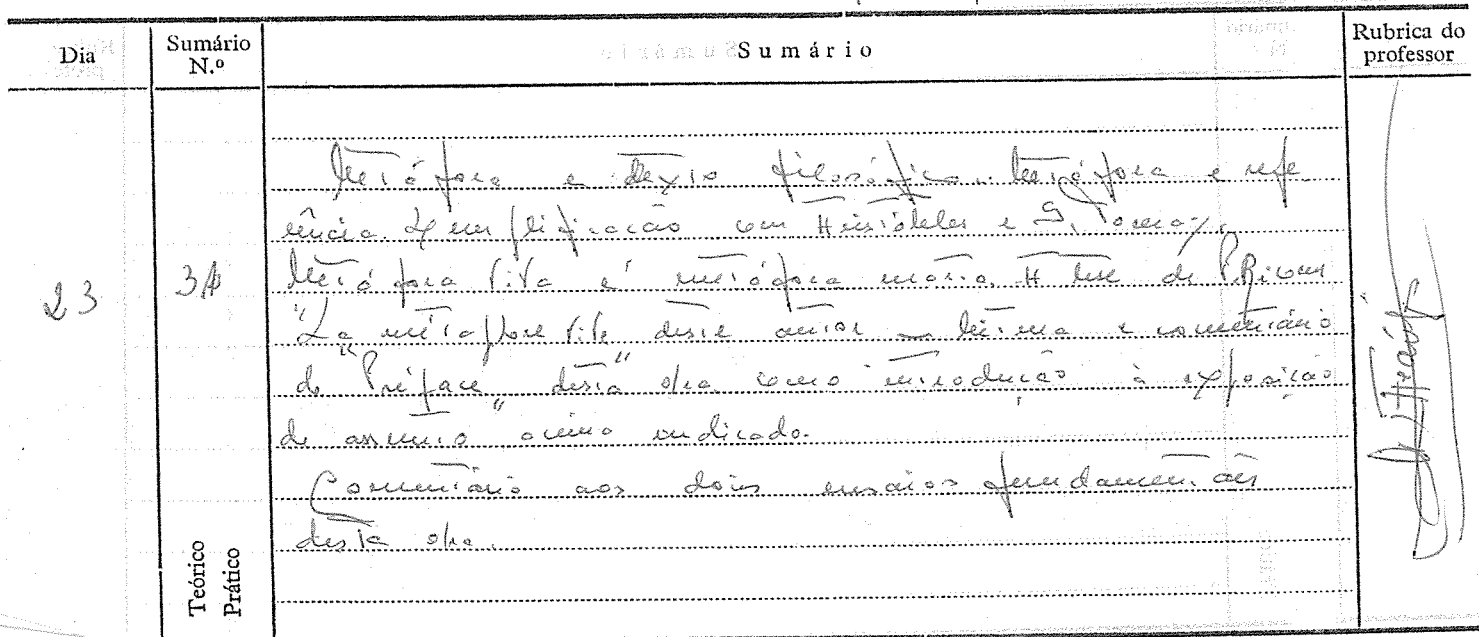 Dia
Sumário N.º
Sumário
Rubrica do professor
23
Metáfora e filosófica. Metáfora e refe
rência. Exemplificação com Aristóteles e S. Tomaz.
Metáfora viva e metáfora morta. A tese de P. Ricoeur
"La métaphore vive deste autor – leitura e comentário
do "Préface" desta obra como introdução à exposição
do assunto acima indicado.
Comentário aos dois ensaios fundamentais
desta obra.
Teórico
Prático